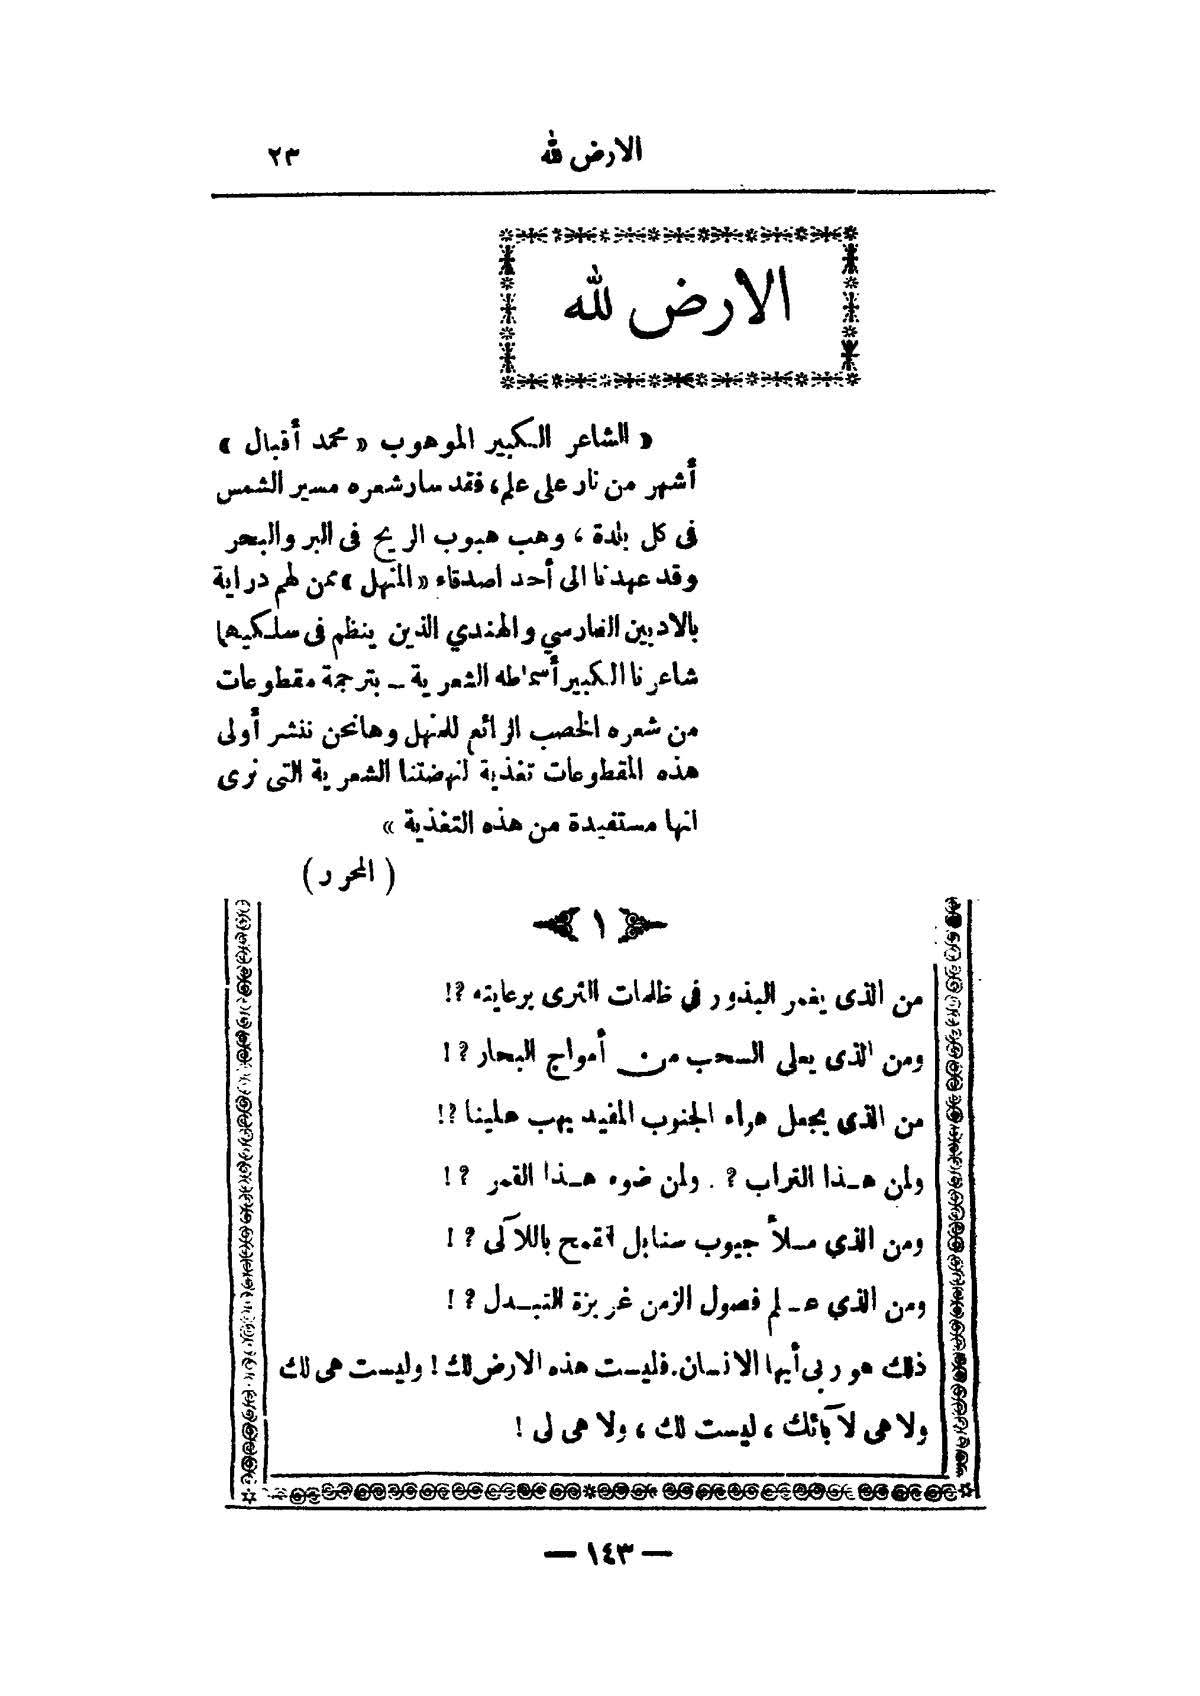 الارض لله ٢٣
الارض لله
« الشاعر الكبير الموهوب « محمد أقبال »
أشهر من نار على علم، فقد سار شعره مسير الشمس
فى كل بلدة ، وهب هبوب الريح فى البر والبحر
وقد عهدنا الى أحد اصدقاء « المنهل » ممن لهم دراية
بالادبين الفارسي والهندي الذين ينظم فى سلكيهما
شاعرنا الكبير أسماطه الشعرية ــ بترجمة مقطوعات
من شعره الخصب الرائع للمنهل وهانحن ننشر أولى
هذه المقطوعات تغذية لنهضتنا الشعرية التى نرى
انها مستفيدة من هذه التغذية »
( المحرر )
١
من الذى يغمر البذور في ظلمات الثرى برعايته ؟!
ومن الذى يعلى السحب من أمواج البحار ؟ !
من الذى يجعل هواء الجنوب المفيد يهب علينا ؟!
ولمن هـذا التراب ؟ . ولمن ضوء هـذا القمر ؟ !
ومن الذي مـلأ جيوب سنابل القمح باللآلى ؟ !
ومن الذي عـلم فصول الزمن غريزة التبـدل ؟ !
ذلك هو ربى أيها الانسان. فليست هذه الارض لك ! وليست هى لك
ولا هى لآبائك ، ليست لك ، ولا هى لى !
— ١٤٣ —